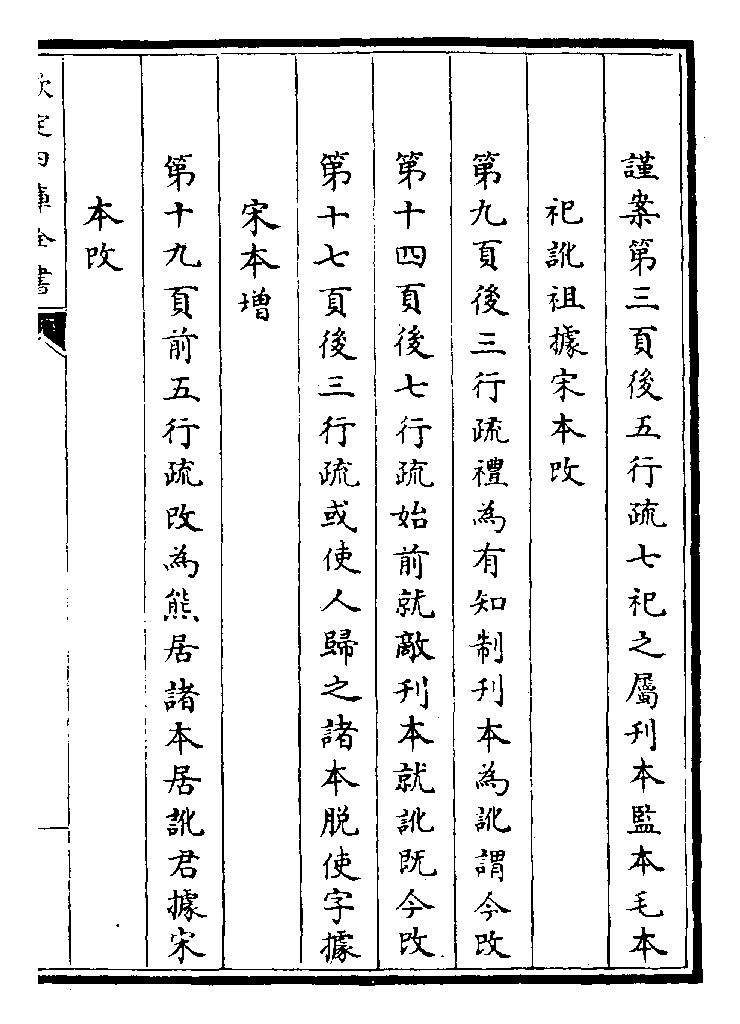 謹案第三頁後五行疏七祀之屬刊本監本毛本
祀訛祖據宋本改
第九頁後三行疏禮為有知制刊本為訛謂今改
第十四頁後七行疏始前就敵刊本就訛既今改
第十七頁後三行疏或使人歸之諸本脱使字據
宋本増
第十九頁前五行疏改為熊居諸本居訛君據宋
本改
欽定四庫全書